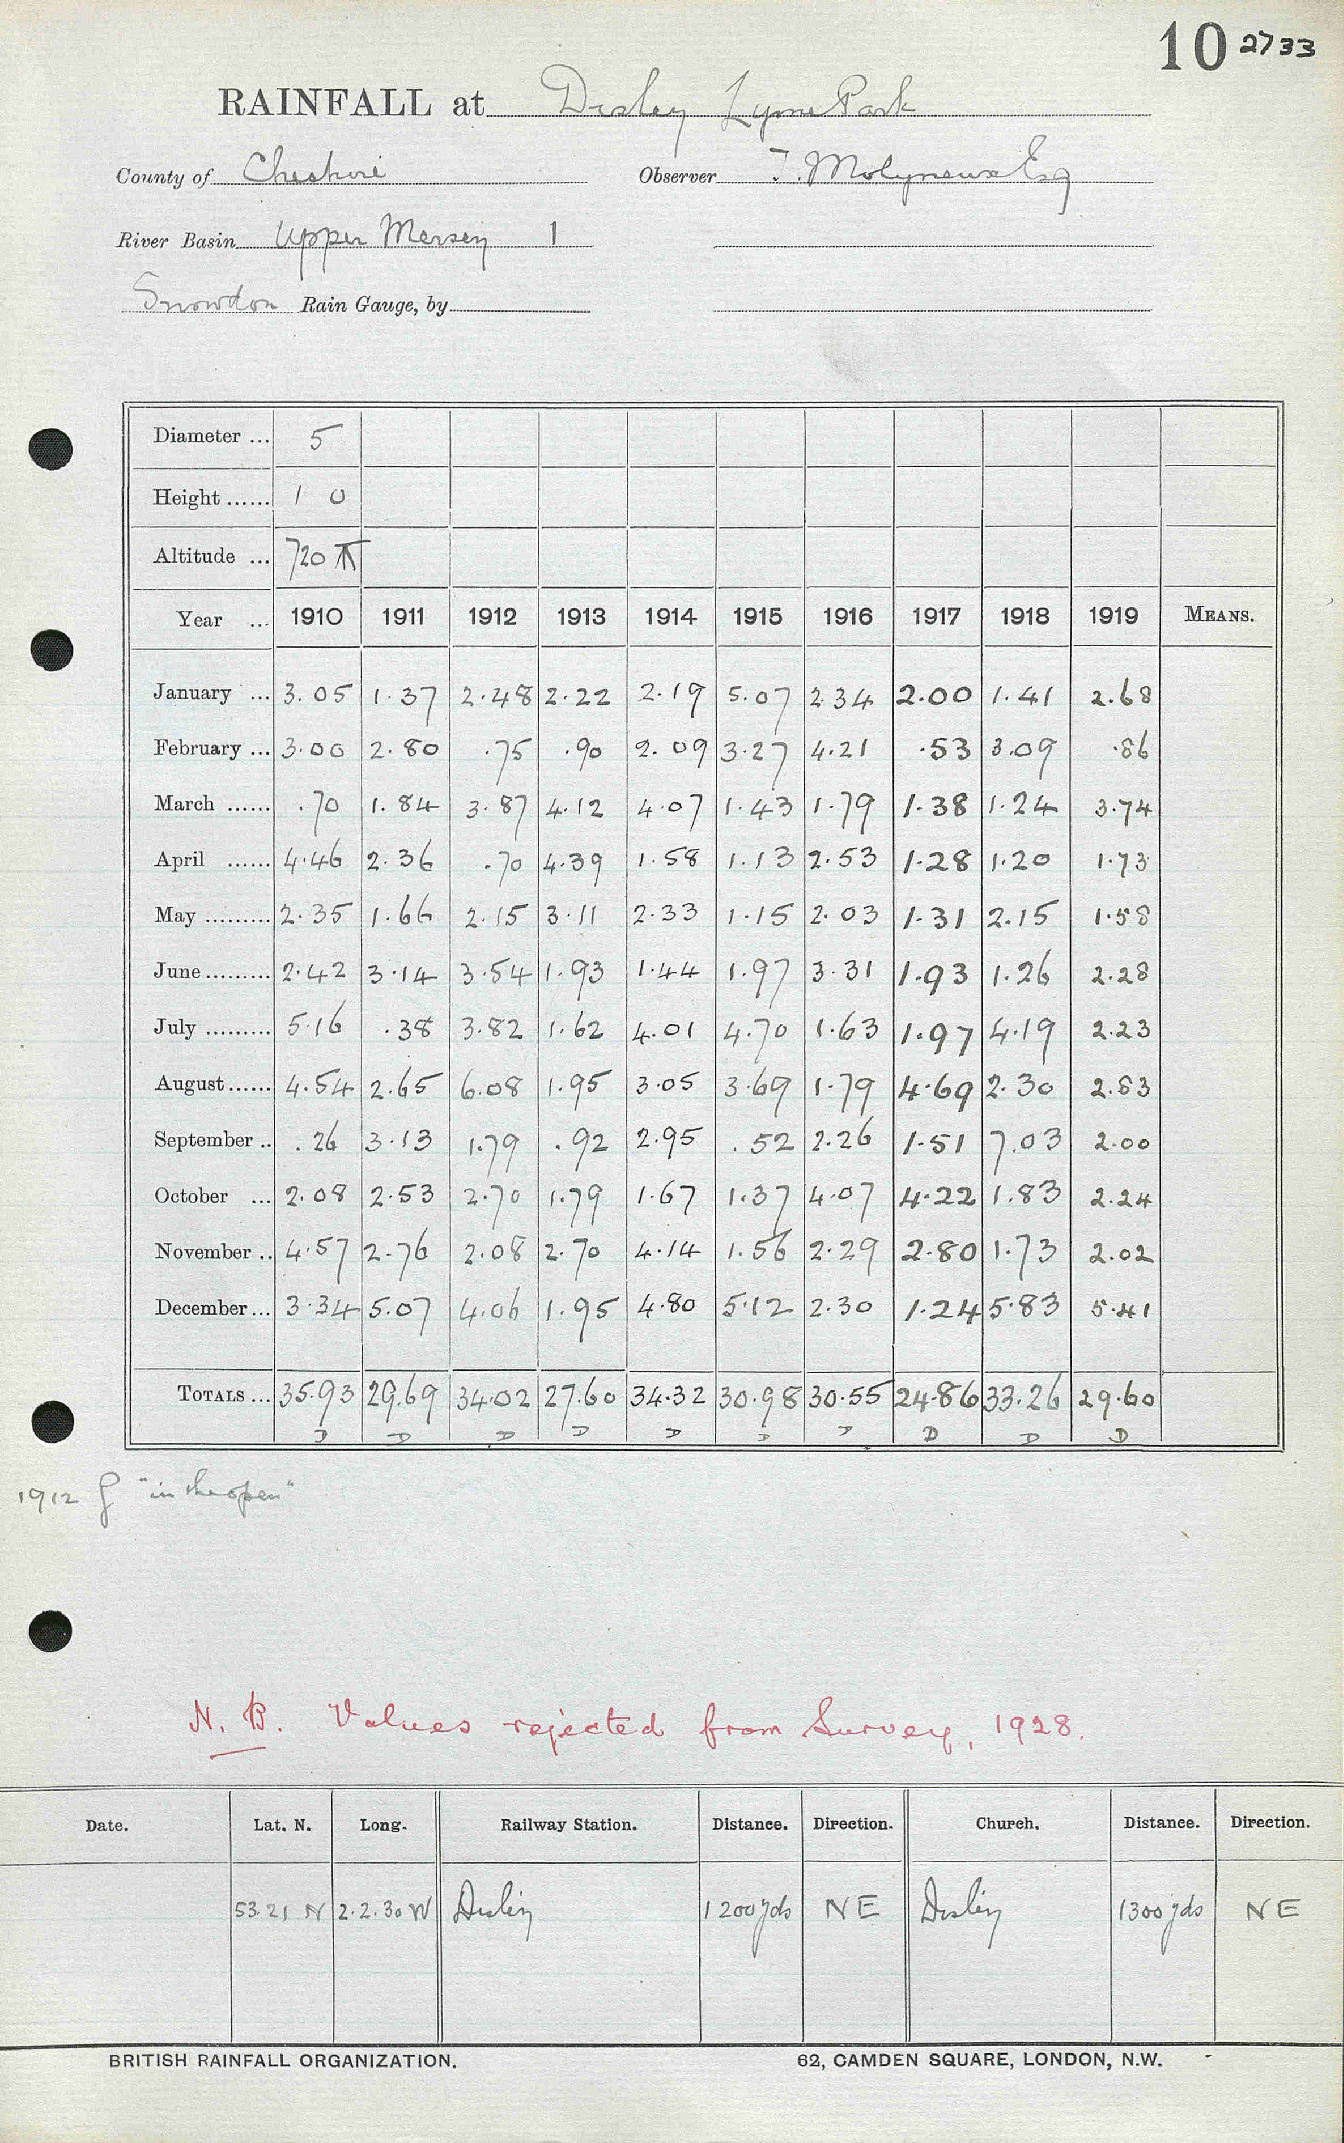 10 2733
RAINFALL at Disley Lyme Park
County of Cheshire Observer T. Molyneux Esq
River Basin Upper Mersey 1
Snowdon Rain Gauge, by
Diameter ... 5
Height ...... 1 0
Altitude ... 720 ft
Year ... 1910 1911 1912 1913 1914 1915 1916 1917 1918 1919 MEANS.
January ... 3.05 1.37 2.48 2.22 2.19 5.07 2.34 2.00 1.41 2.68
February ... 3.00 2.80 .75 .90 2.09 3.27 4.21 .53 3.09 .86
March ...... .70 1.84 3.87 4.12 4.07 1.43 1.79 1.38 1.24 3.74
April ...... 4.46 2.36 .70 4.39 1.58 1.13 2.53 1.28 1.20 1.73
May ......... 2.35 1.66 2.15 3.11 2.33 1.15 2.03 1.31 2.15 1.58
June ......... 2.42 3.14 3.54 1.93 1.44 1.97 3.31 1.93 1.26 2.28
July ......... 5.16 .38 3.82 1.62 4.01 4.70 1.63 1.97 4.19 2.23
August ...... 4.54 2.65 6.08 1.95 3.05 3.69 1.79 4.69 2.30 2.83
September .. .26 3.13 1.79 .92 2.95 .52 2.26 1.51 7.03 2.00
October ... 2.08 2.53 2.70 1.79 1.67 1.37 4.07 4.22 1.83 2.24
November .. 4.57 2.76 2.08 2.70 4.14 1.56 2.29 2.80 1.73 2.02
December ... 3.34 5.07 4.06 1.95 4.80 5.12 2.30 1.24 5.83 5.41
TOTALS ... 35.93 29.69 34.02 27.60 34.32 30.98 30.55 24.86 33.26 29.60
D D D D D D D D D D
1912 G "in the open"
N. B. Values rejected from Survey, 1928.
Date. Lat. N. Long. Railway Station. Distance. Direction. Church. Distance. Direction.
53.21 N 2.2.30 W Disley 1200 yds NE Disley 1300 yds NE
BRITISH RAINFALL ORGANIZATION. 62, CAMDEN SQUARE, LONDON, N.W.